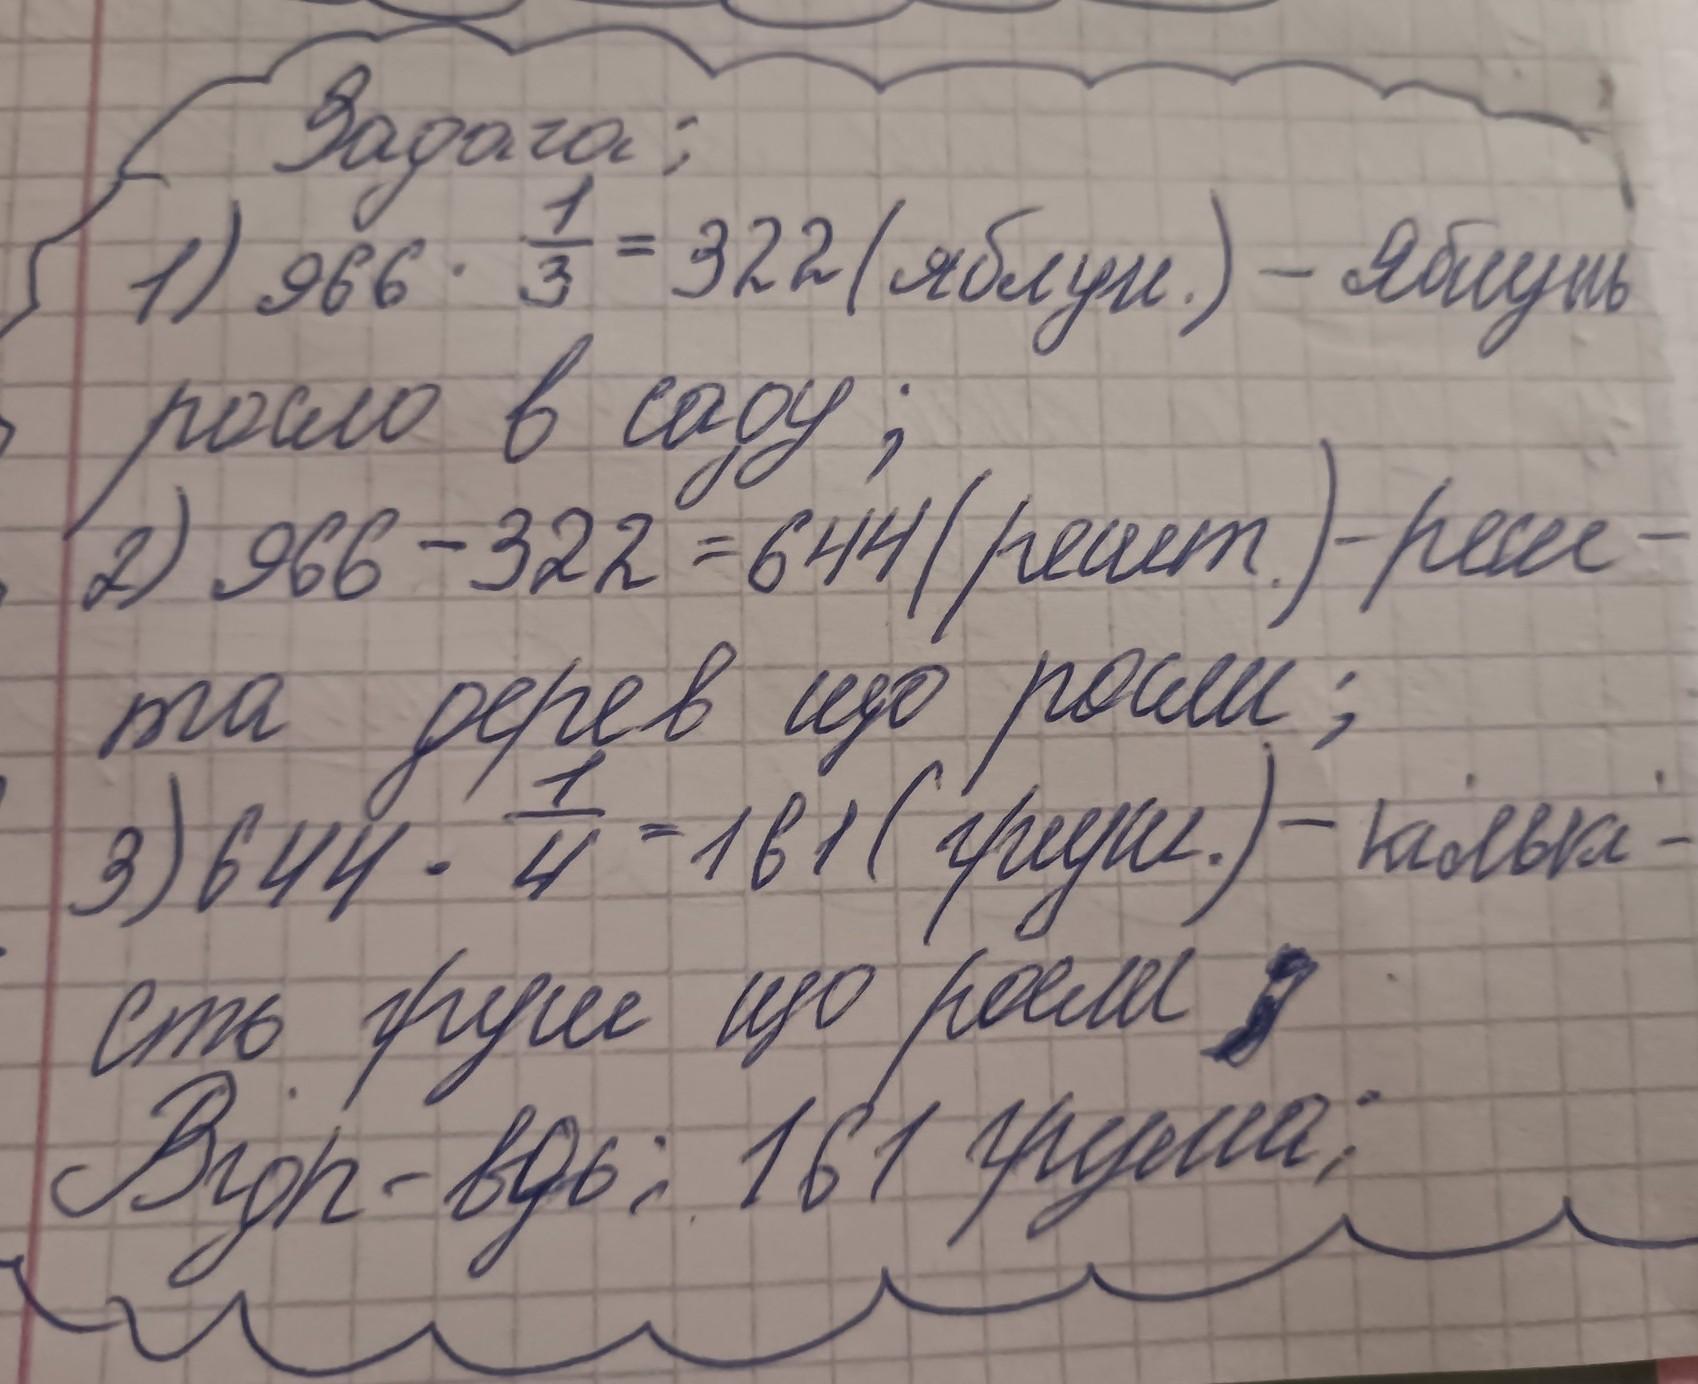 Задача;
1) 966 · 1/3 = 322 (яблун.) – Яблунь
росло в саду;
2) 966 – 322 = 644 (решт.) – реш-
та дерев що росли;
3) 644 · 1/4 = 161 (груш.) – кількі-
сть груш що росли;
Відп-вдь: 161 груша;